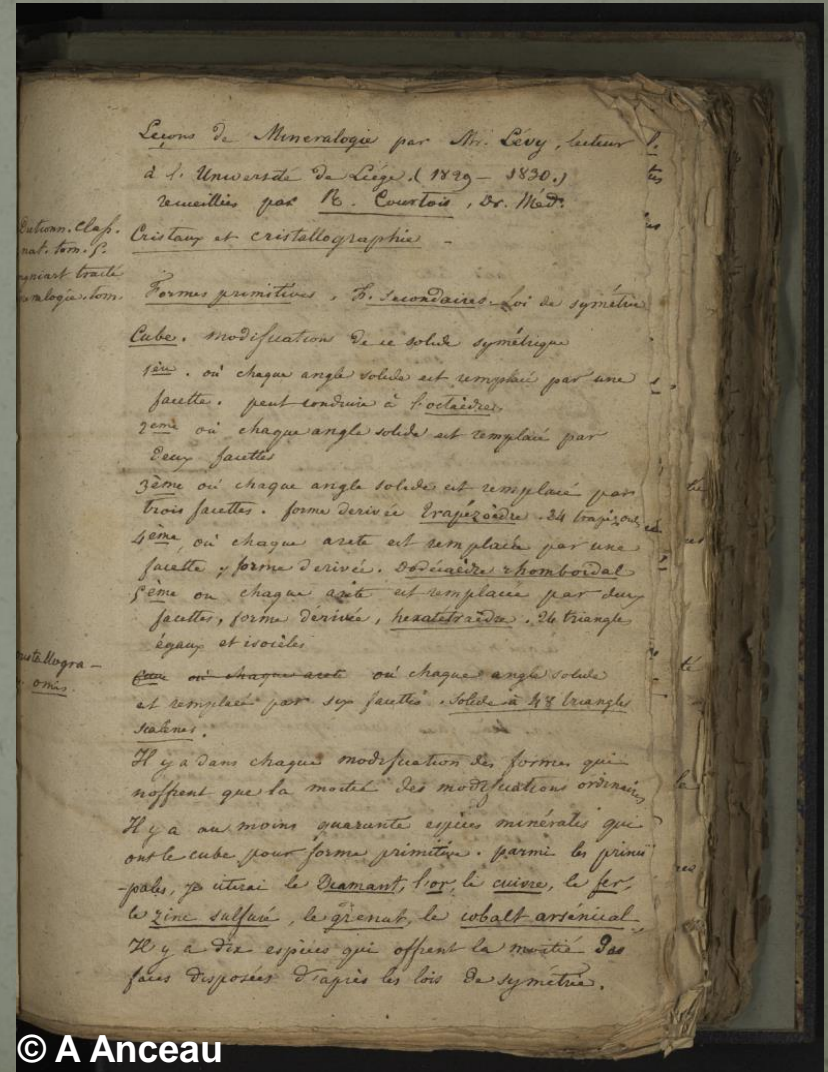 Leçons de Mineralogie par Mr. Lévy, lecteur
à l'Université de Liége. (1829 – 1830.)
recueillies par R. Courtois, Dr. Méd.
Dictionn. Class.
nat. tom. 5.
traité
tom.
Cristaux et cristallographie –
Formes primitives, F. secondaires. Loi de symétrie
Cube. modification de ce solide symétrique
1ère. où chaque angle solide est remplacé par une
facette. peut conduire à l'octaèdre.
2eme où chaque angle solide est remplacé par
deux facettes
3ème où chaque angle solide est remplacé par
trois facettes. forme derivée trapézoèdre. 24 trapézoides
4ème, où chaque arete est remplacée par une
facette, forme derivée. Dodécaèdre rhomboïdal
5ème ou chaque arète est remplacée par deux
facettes, forme dérivée, hexatetraèdre. 24 triangles
égaux et isocèles
omis.
où chaque arete où chaque angle solide
est remplacé par six facettes. solide à 48 triangles
scalènes.
Il y a dans chaque modification des formes qui
n'offrent que la moitié des modifications ordinaires
Il y a au moins quarante espèces minérales qui
ont le cube pour forme primitive. parmi les princi
-pales, je citerai le Diamant, l'or, le cuivre, le fer,
le zinc sulfuré, le grenat, le cobalt arsénical
Il y a dix espèces qui offrent la moitié des
faces disposées d'après les lois de symétrie.
© A Anceau